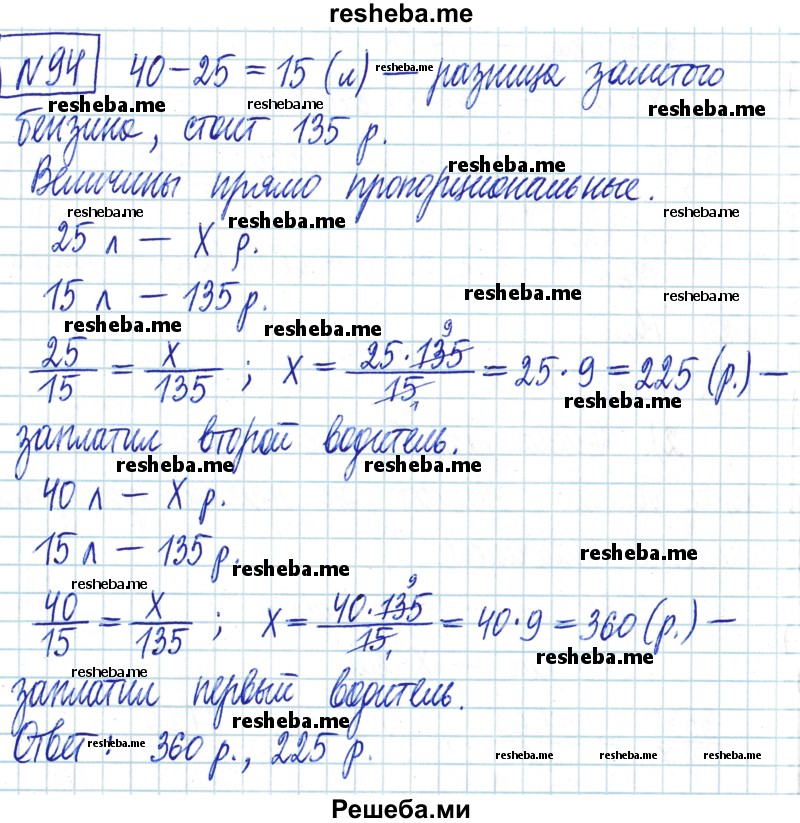 resheba.me
№94 40 – 25 = 15 (л) – разница залитого
resheba.me
resheba.me resheba.me resheba.me
бензина, стоит 135 р.
resheba.me
Величины прямо пропорциональные.
resheba.me resheba.me resheba.me
25 л — x р.
15 л — 135 р.
resheba.me resheba.me
resheba.me resheba.me
25/15 = x/135 ; x = 25·135/15 = 25·9 = 225 (р.) –
9
1
resheba.me
заплатил второй водитель.
resheba.me resheba.me
40 л — x р.
15 л — 135 р.
resheba.me resheba.me
resheba.me
40/15 = x/135 ; x = 40·135/15 = 40·9 = 360 (р.) –
9
1
resheba.me
resheba.me
заплатил первый водитель.
resheba.me
Ответ: 360 р., 225 р.
resheba.me resheba.me resheba.me resheba.me
Решеба.ми